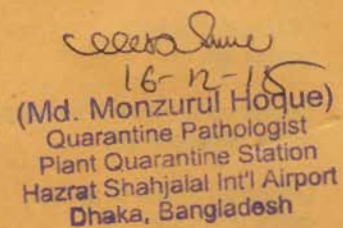 16-12-15
(Md. Monzurul Hoque)
Quarantine Pathologist
Plant Quarantine Station
Hazrat Shahjalal Int'l Airport
Dhaka, Bangladesh